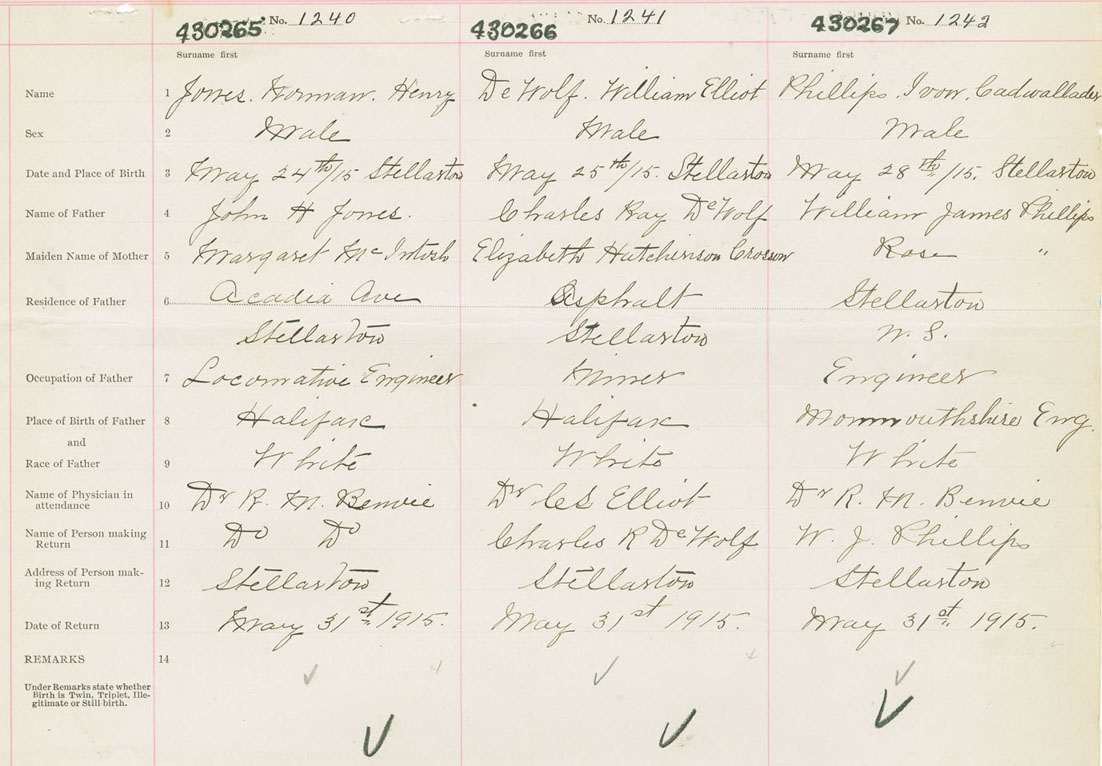 430265 No. 1240 430266 No. 1241 430267 No. 1242
Surname first Surname first Surname first
Name 1 Jones. Norman. Henry De Wolf. William Elliot Phillips. Ivor. Cadwallader
Sex 2 Male Male Male
Date and Place of Birth 3 May 24th/15 Stellarton May 25th/15. Stellarton May 28th/15. Stellarton
Name of Father 4 John H Jones. Charles Ray DeWolf William James Phillips
Maiden Name of Mother 5 Margaret McIntosh Elizabeth Hutchinson Crosson Rose "
Residence of Father 6 Acadia Ave Asphalt Stellarton
Stellarton Stellarton N. S.
Occupation of Father 7 Locomative Engineer Miner Engineer
Place of Birth of Father 8 Halifax Halifax Monmouthshire Eng.
and
Race of Father 9 White White White
Name of Physician in
attendance 10 Dr R. M. Benvie Dr C S Elliot Dr R. M. Benvie
Name of Person making
Return 11 Do Do Charles R DeWolf W. J. Phillips
Address of Person mak-
ing Return 12 Stellarton Stellarton Stellarton
Date of Return 13 May 31st 1915. May 31st 1915. May 31st 1915.
REMARKS 14
Under Remarks state whether
Birth is Twin, Triplet, Ille-
gitimate or Still-birth.